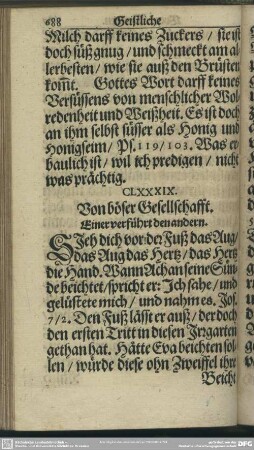 688 Geistliche
Milch darff keines Zuckers / sie ist
doch süß gnug / und schmeckt am al
lerbesten / wie sie auß den Brüsten
kom̃t. Gottes Wort darff keines
Versüssens von menschlicher Wol
redenheit und Weißheit. Es ist doch
an ihm selbst süsser als Honig und
Honigseim / Ps. 119 / 103. Was er
baulich ist / wil ich predigen / nicht
was prächtig.
CLXXXIX.
Von böser Gesellschafft.
Einer verführt den andern.
SIeh dich vor der Fuß das Aug /
das Aug das Hertz / das Hertz
die Hand. Wann Achan seine Sün
de beichtet / spricht er: Ich sahe / und
gelüstete mich / und nahm es. Jos.
7 / 2. Den Fuß lässt er auß / der doch
den ersten Tritt in diesen Irrgarten
gethan hat. Hätte Eva beichten sol
len / würde diese ohn Zweiffel ihre
Beicht